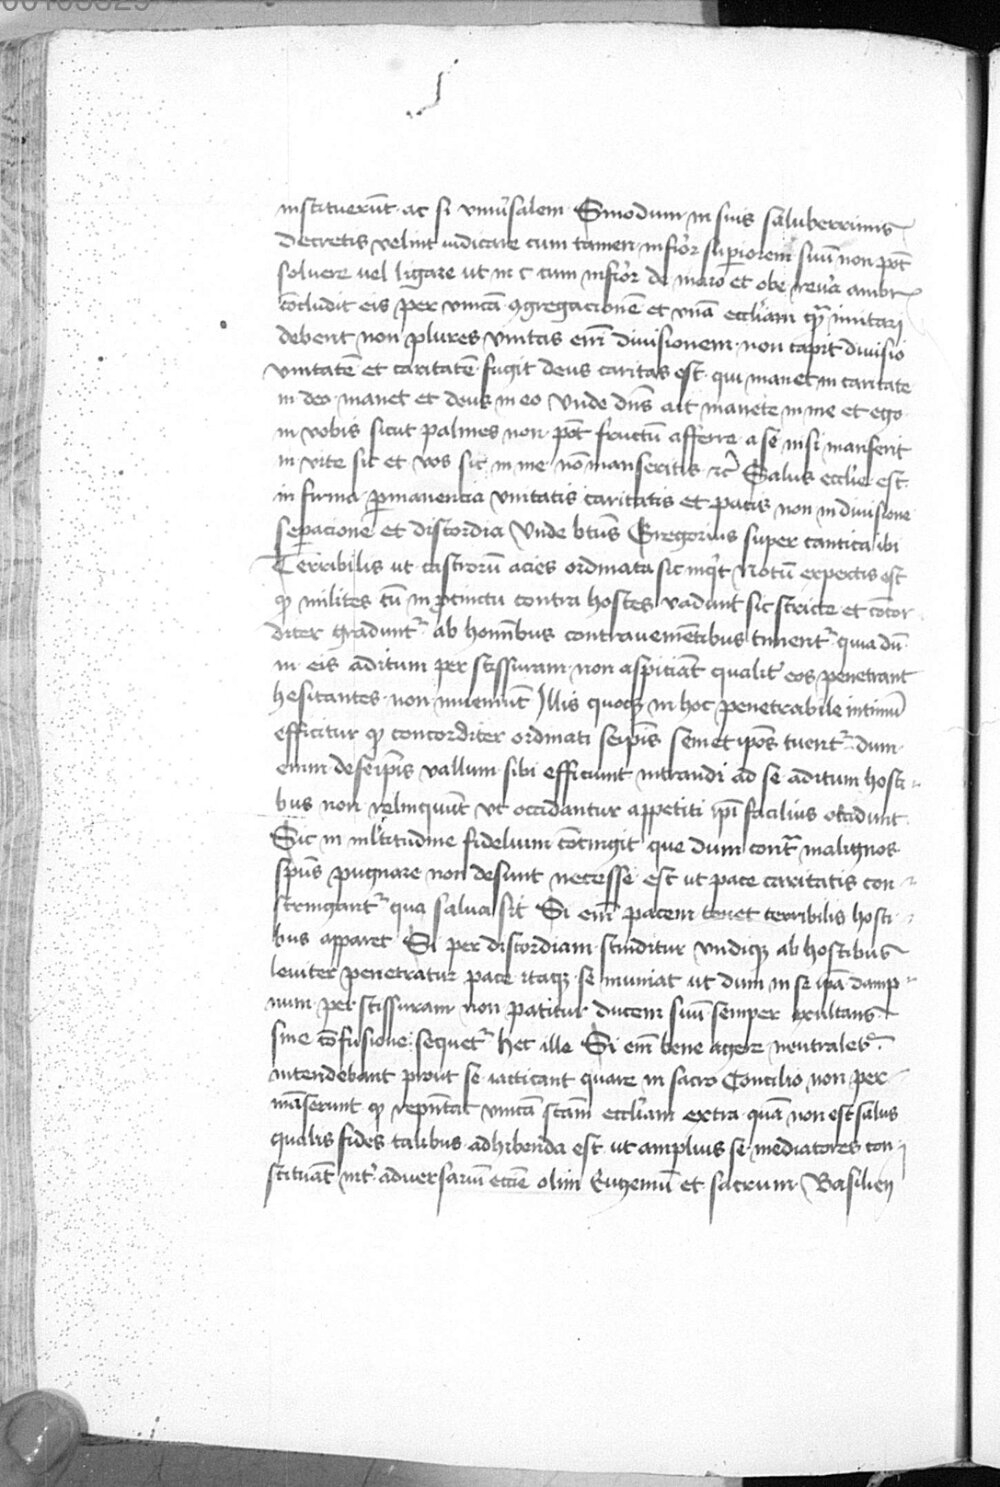 instituerūt ac si vniu'salem Sinodum in suis saluberrimis
decretis velint iudicare cum tamen inferior superiorem suū non pōt
soluere vel ligare ut in c cum inferior de maio et obe
cōcludit eis per vnicam ꝯgregacionē et vnā eccliam imitari
debent non plures vnitas enī diuisionem non capit diuisio
vnitatē et caritatē fugit deus caritas est qui manet in caritate
in deo manet et deus in eo Vnde dns ait manete in me et ego
in vobis sicut palmes non pōt fructū afferre a se nisi manserit
in vite sic et vos si in me nō manseritis rc Salus ecclie est
in firma permanencia vnitatis caritatis et pacis non in diuisione
separacione et discordia Vnde btus Gregorius super cantica ibi
Terribilis ut castrorū acies ordinata sic inqt Notū expertis est
qp milites cū in procinctu contra hostes vadunt sic stricte et concor
diter gradunt' ab hominbus contrauenientibus timent' quia dū
in eis aditum per scissuram non aspiciāt qualit' eos penetrant
hesitantes non inueniunt Illis quoqз in hoc penetrabile intimū
efficitur qp concorditer ordinati seipis semetipos tuent' dum
enim de seipis vallum sibi efficiunt intrandi ad se aditum hosti
bus non relinquunt vt occidantur appetiti ipi facilius occidunt
Sic in multitudine fidelium contingit que dum contra malignos
spus pugnare non desunt necesse est ut pace caritatis con
stringant' qua salua sit Si enī pacem tenet terribilis hosti
bus apparet Si per discordiam scinditur vndiqз ab hostibus
leuiter penetratur pace itaqз se muniat ut dum in se ipa damp
num per scissuram non patitur ducem suū semper exultans
sine cōfusione sequet' Hec ille Si enī bene agere neutrales
intendebant prout se iacticant quare in sacro Concilio non per
māserunt qp repntat vnicā scam eccliam extra quā non est salus
qualis fides talibus adhibenda est ut amplius se mediatores con
stituāt int' aduersariū eccie olim Eugeniū et sacrum Basilien